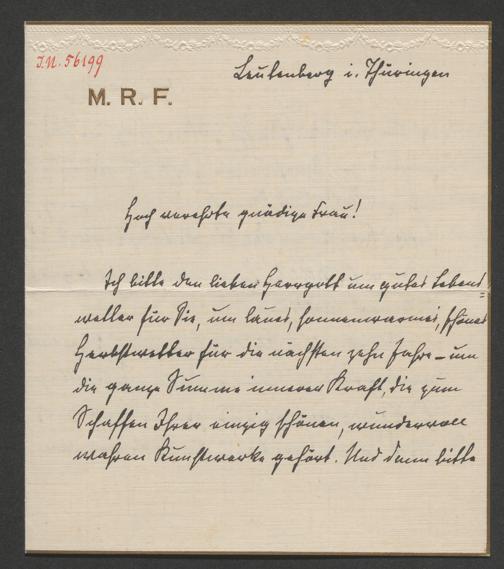 I.N. 56199
Leutenberg i. Thüringen
M. R. F.
Hoch verehrte gnädige Frau!
Ich bitte den lieben Herrgott um gutes Lebens=
wetter für Sie, um laues, sonnenwarmes, schönes
Herbstwetter für die nächsten zehn Jahre – um
die ganze Summe innerer Kraft, die zum
Schaffen Ihrer einzig schönen, wundervoll
wahren Kunstwerke gehört. Und dann bitte